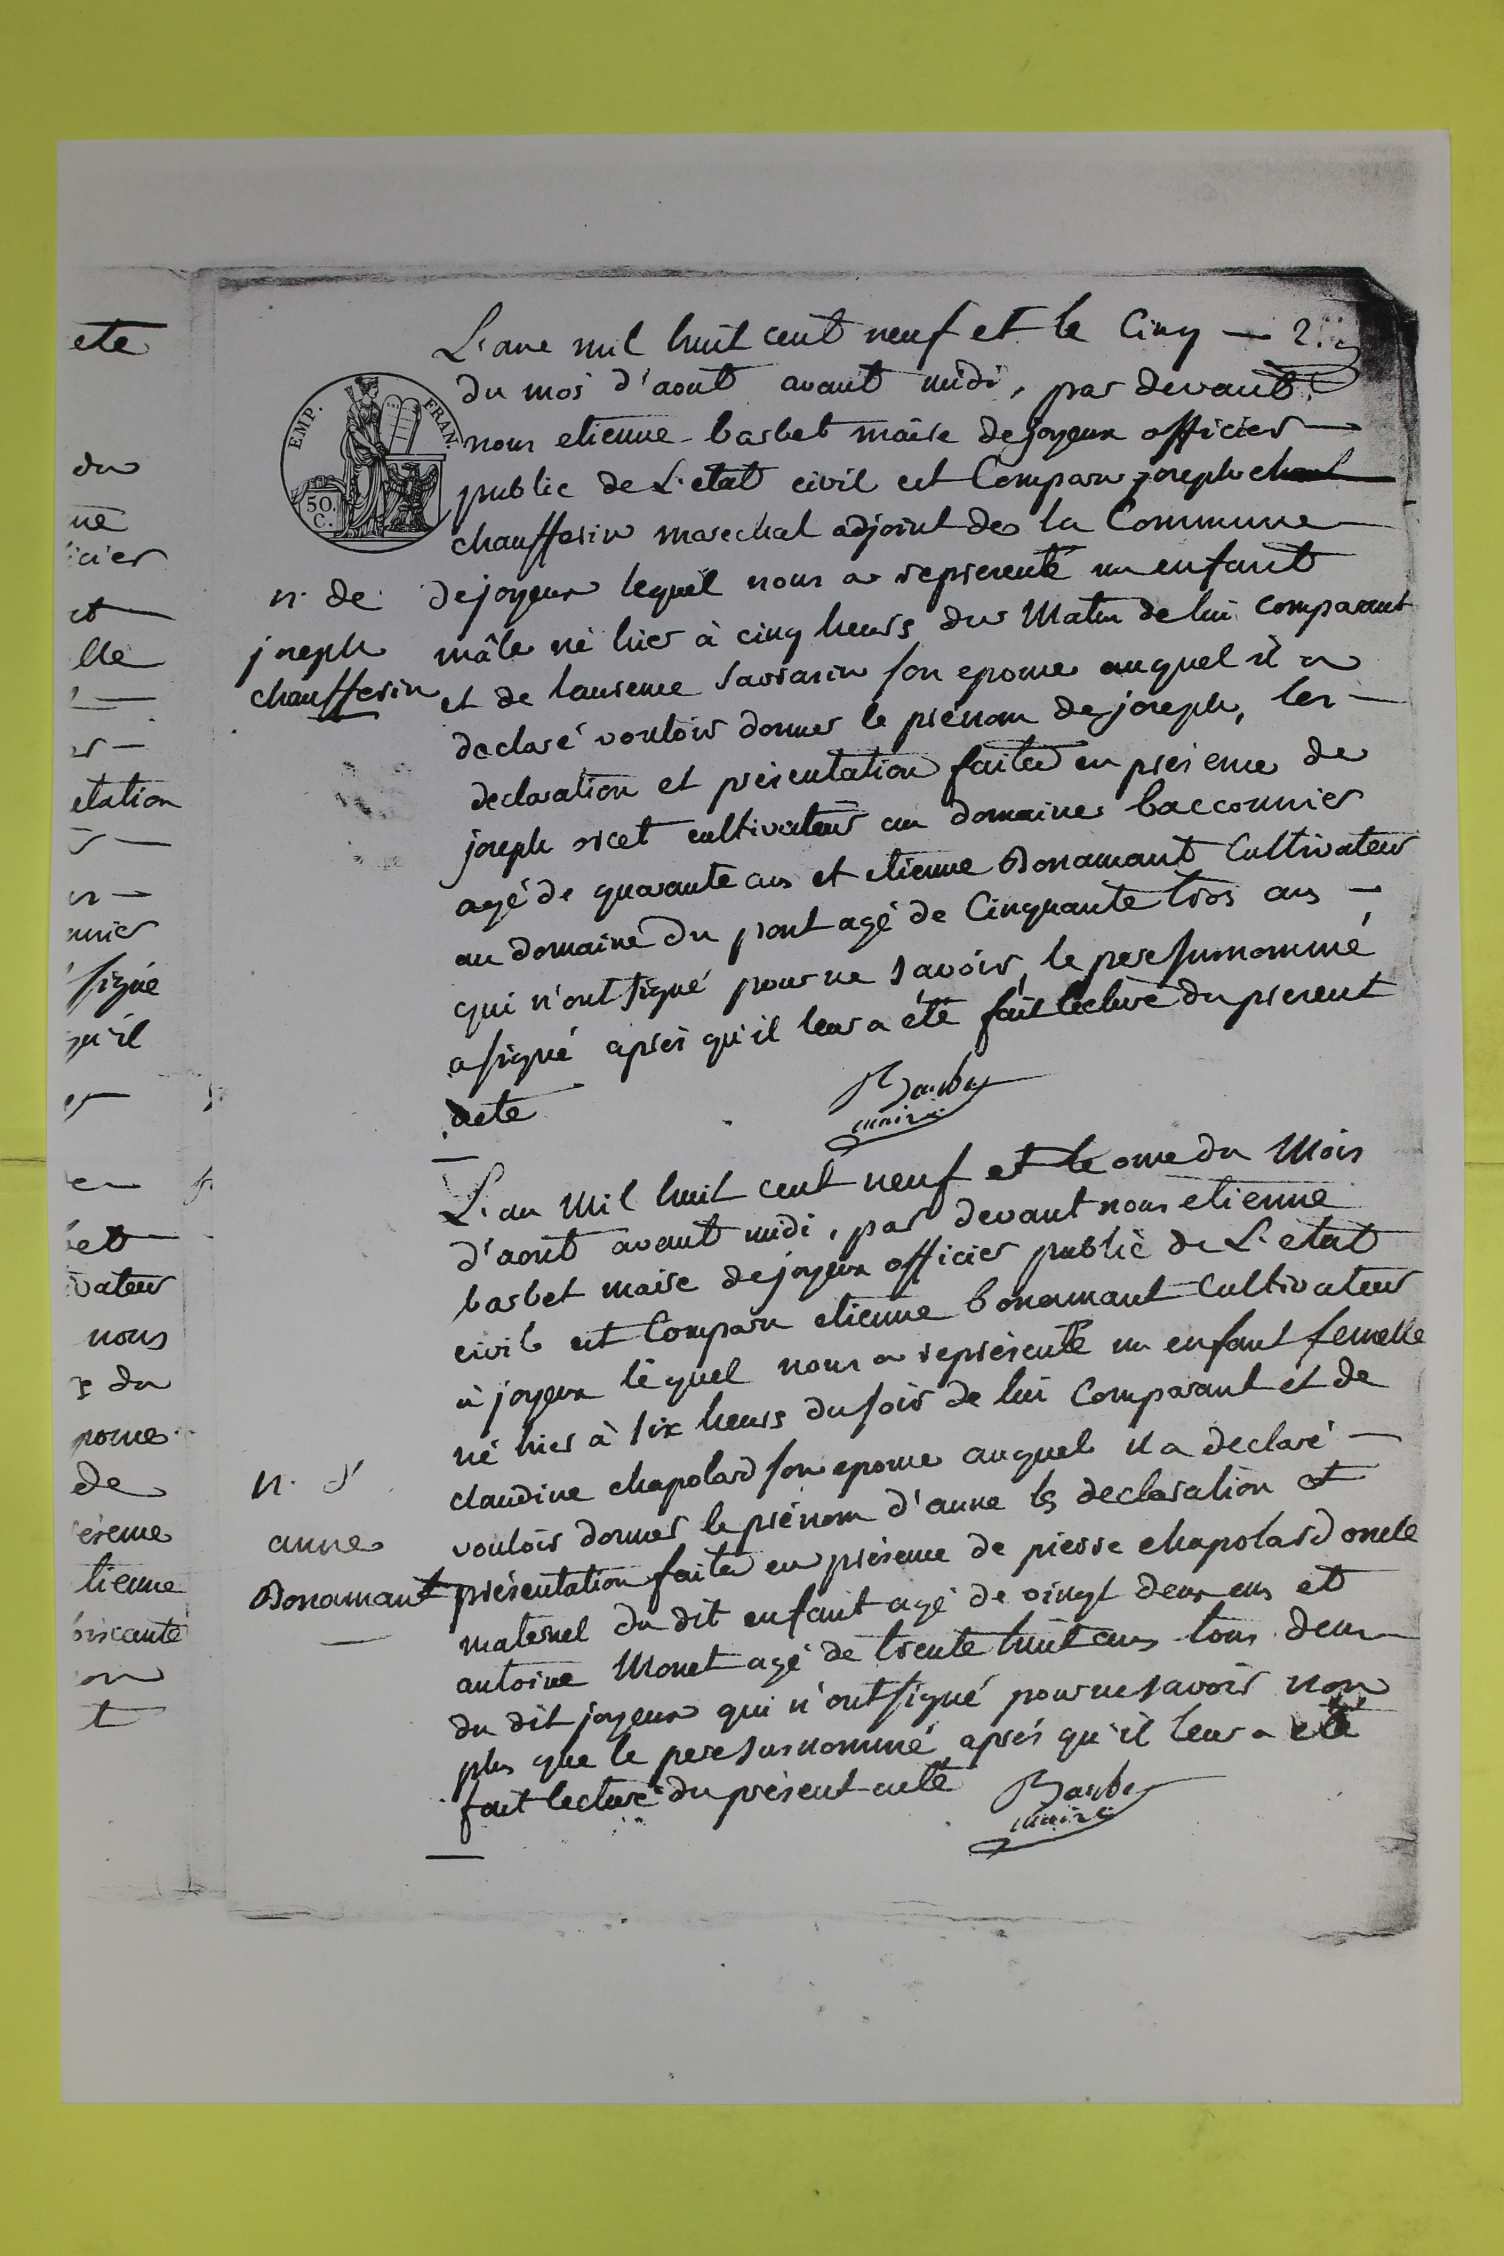 ete
du
ne
icier
et
lle
etation
nnier
signé
qu'il
vateur
nous
du
pouse
de
ésence
tienne
oixante
on
t
EMP. FRAN.
50.
C.
L'ane mil huit cent neuf et le Cinq
du mos d'aout avant midi, par devant
nous etienne barbet maire de joyeux officier
public de L'etat civil est Comparu joseph chauf
chaufferin marechal adjoint de la Commune
de joyeux lequel nous a représenté un enfant
mâle né hier à cinq heurs du Matin de lui Comparant
et de laurence Sarrasin son epouse auquel il a
declaré vouloir donner le prénom de joseph, les
declaration et présentation faite en présence de
joseph oicet cultivateur au domaine bacconnier
agé de quarante ans et etienne Bonamant Cultivateur
au domaine du pont agé de Cinquante trois ans
qui n'ont signé pour ne savoir, le pere sunommé
a signé après qu'il leur a été fait lecture du présent
acte
n. de
joseph
chaufferin
Barbet
maire
L'an Mil huit cent neuf et le onze du Mois
d'aout avant midi, par devant nous etienne
barbet maire de joyeux officier public de L'etat
civil est Comparu etienne bonamant Cultivateur
à joyeux lequel nous a représenté un enfant femelle
né hier à six heurs du soir de lui Comparant et de
claudine chapolard son epouse auquel il a declaré
vouloir donner le prénom d'anne les declaration et
présentation faite en présence de pierre chapolard oncle
maternel du dit enfant agé de vingt deux ans et
antoine Monet agé de trente huit ans tous deux
du dit joyeux qui n'ont signé pour ne savoir non
plus que le pere susnommé après qu'il leur a été
fait lecture du présent acte
n. d'
anne
Bonamant
Barbet
maire